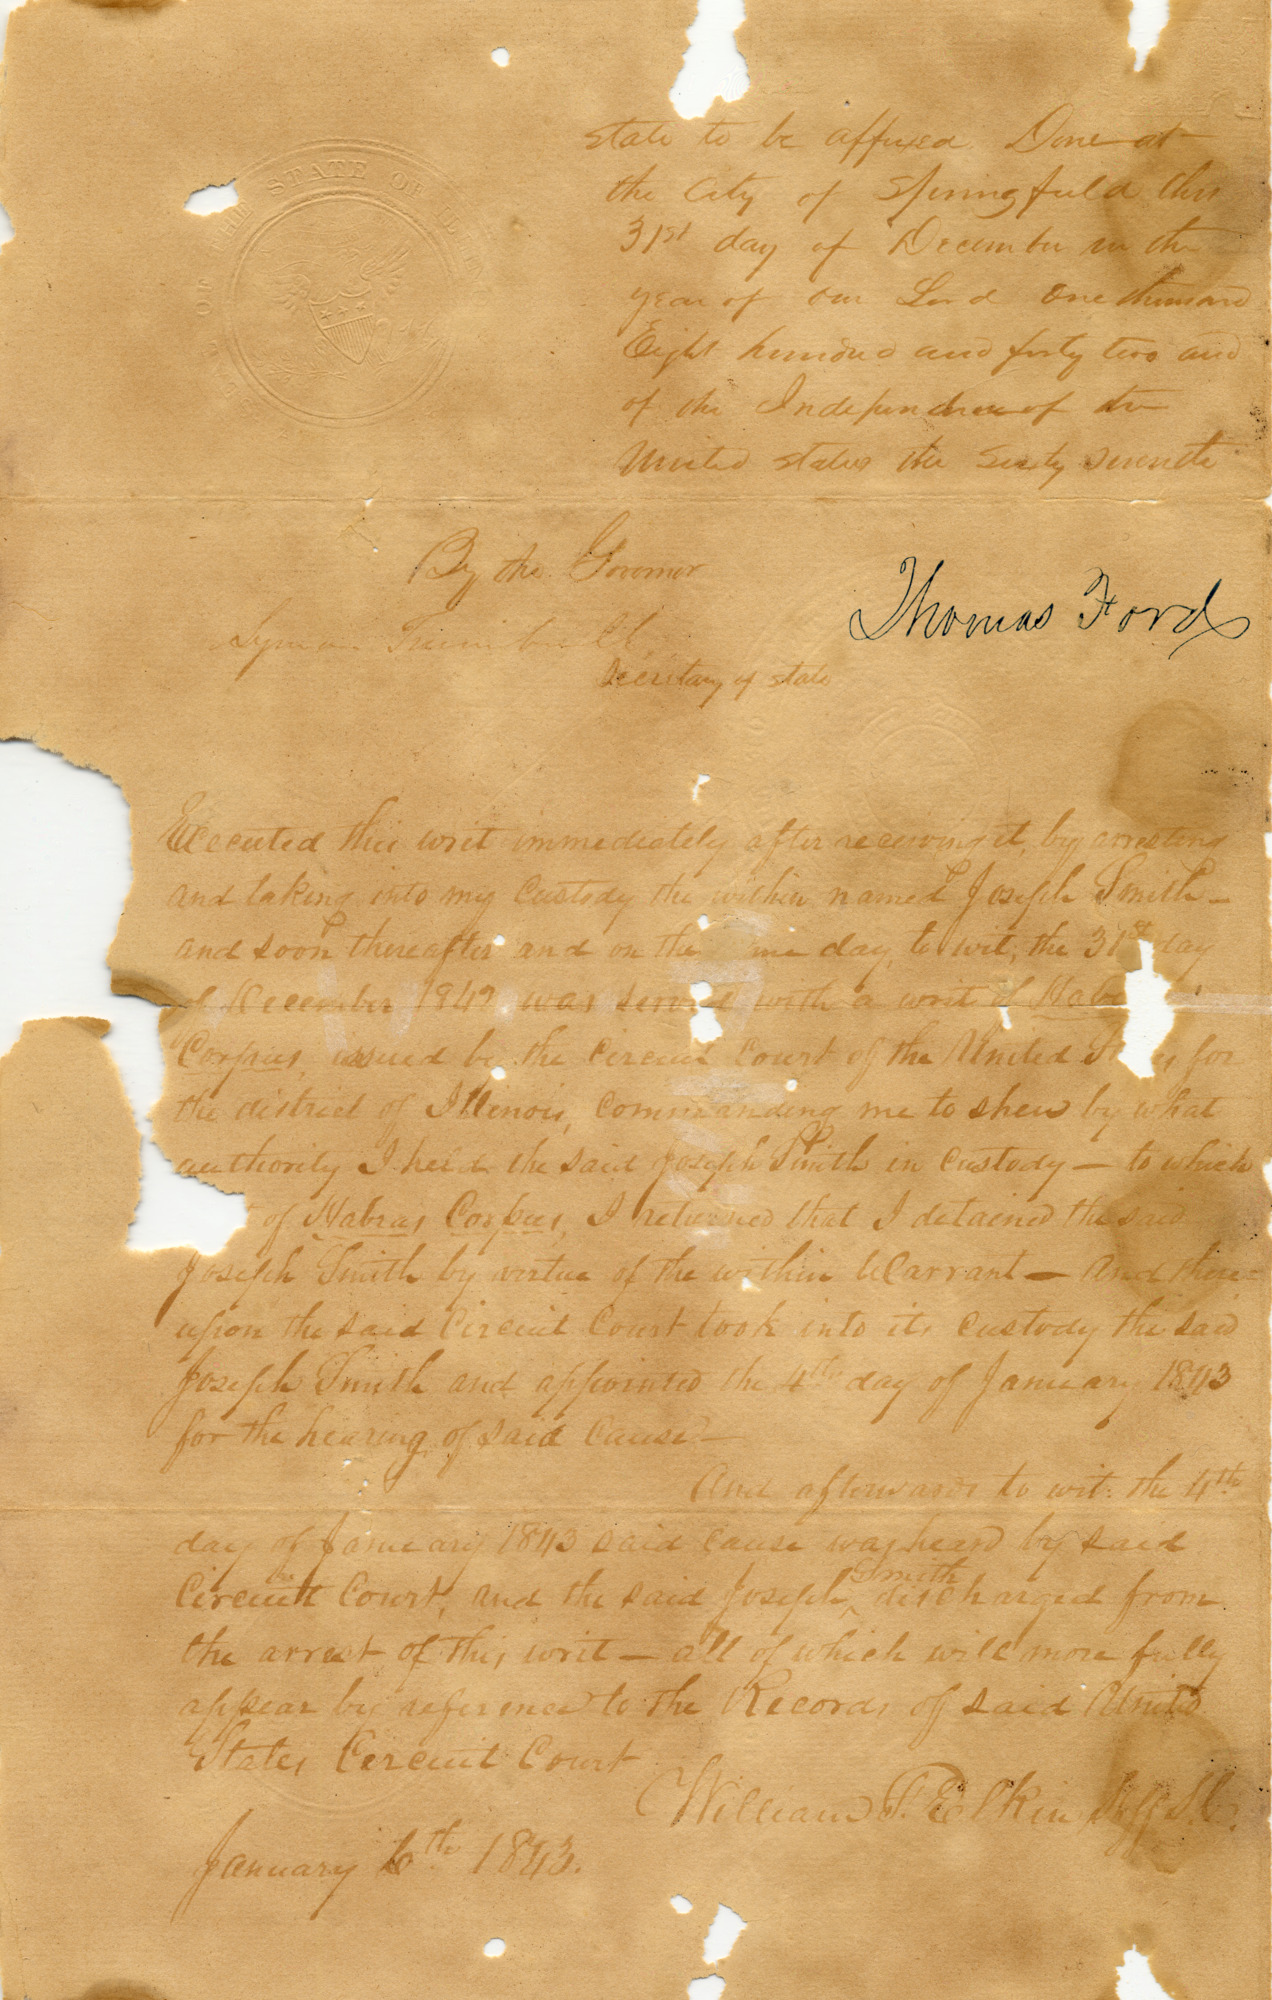 state to be affixed Done at
the City of Springfield this
31st day of December in the
year of our Lord one thousand
Eight hundred and forty two and
of the Independence of the
United states the Sixty seventh
SEAL OF THE STATE OF
By the Governor
Thomas Ford
Lyman Trumbull
Secretary of state
Executed this writ immediately after receiving it, by arresting
and taking into my custody the within named Joseph Smith —
and soon thereafter and on the me day, to wit; the 31st day
of December 1842, was served with a writ of Habe
Corpus, issued by the Circuit Court of the United S es for
the district of Illinois, commanding me to shew by what
authority I held the said Joseph Smith in custody — to which
t of Habeas Corpus, I returned that I detained the said
Joseph Smith by virtue of the within Warrant — And there=
upon the said Circuit Court took into its custody the said
Joseph Smith and appointed the 4th day of January 1843
for the hearing of said Cause —
And afterwards to wit: the 4th
day of January 1843 said cause was heard by said
Circuit Court, and the said Joseph ^Smith discharged from
the arrest of this writ — all of which will more fully
appear by reference to the Records of said United
States Circuit Court
William F. Elkin Shff S.C.
January 6th 1843.